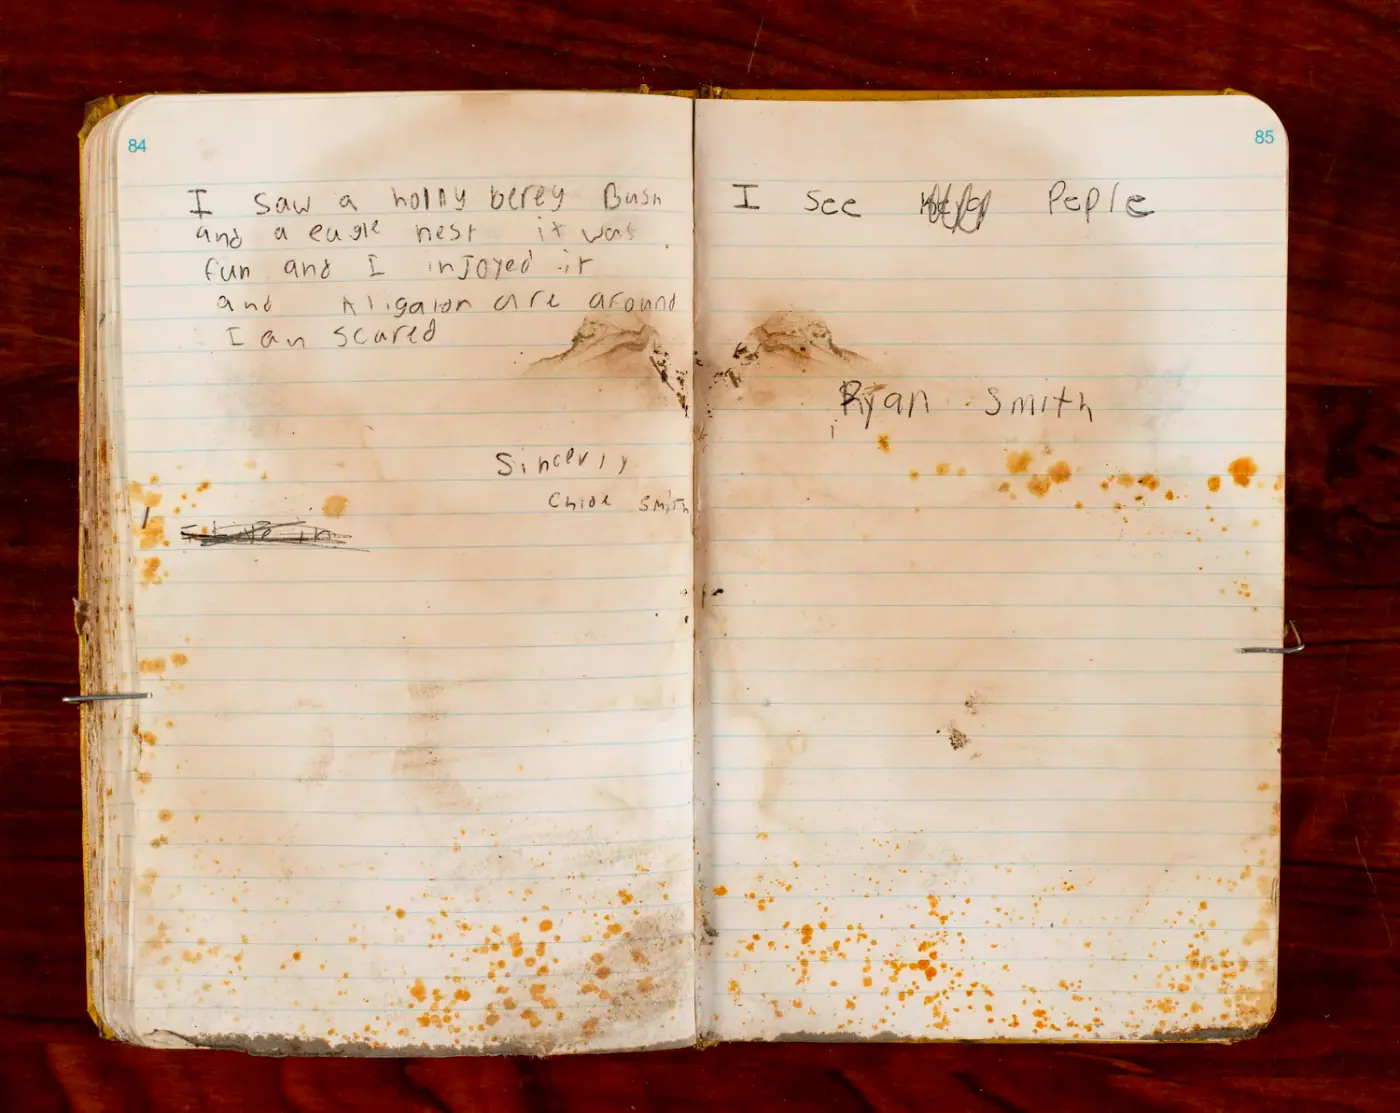 84
I saw a holly berey Bush
and a eagle nest it was
fun and I injoyed it
and Aligaton are around
I an scared
Sincerly
Chloe Smith
85
I see Peple
Ryan Smith